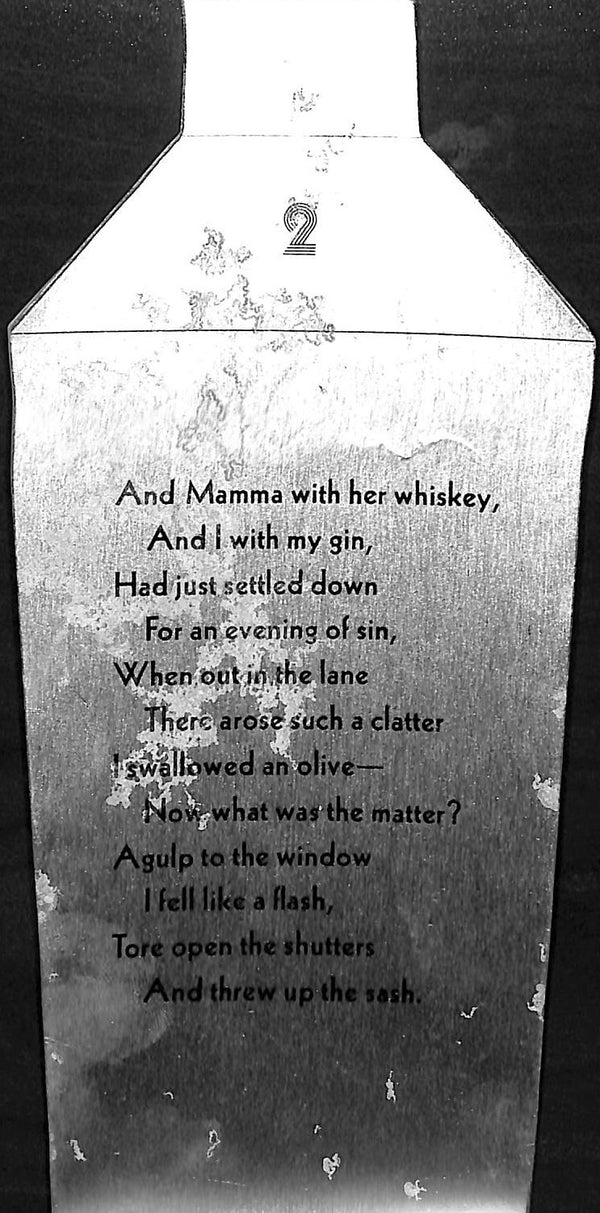 2
And Mamma with her whiskey,
And I with my gin,
Had just settled down
For an evening of sin,
When out in the lane
There arose such a clatter
I swallowed an olive—
Now what was the matter?
Agulp to the window
I fell like a flash,
Tore open the shutters
And threw up the sash.